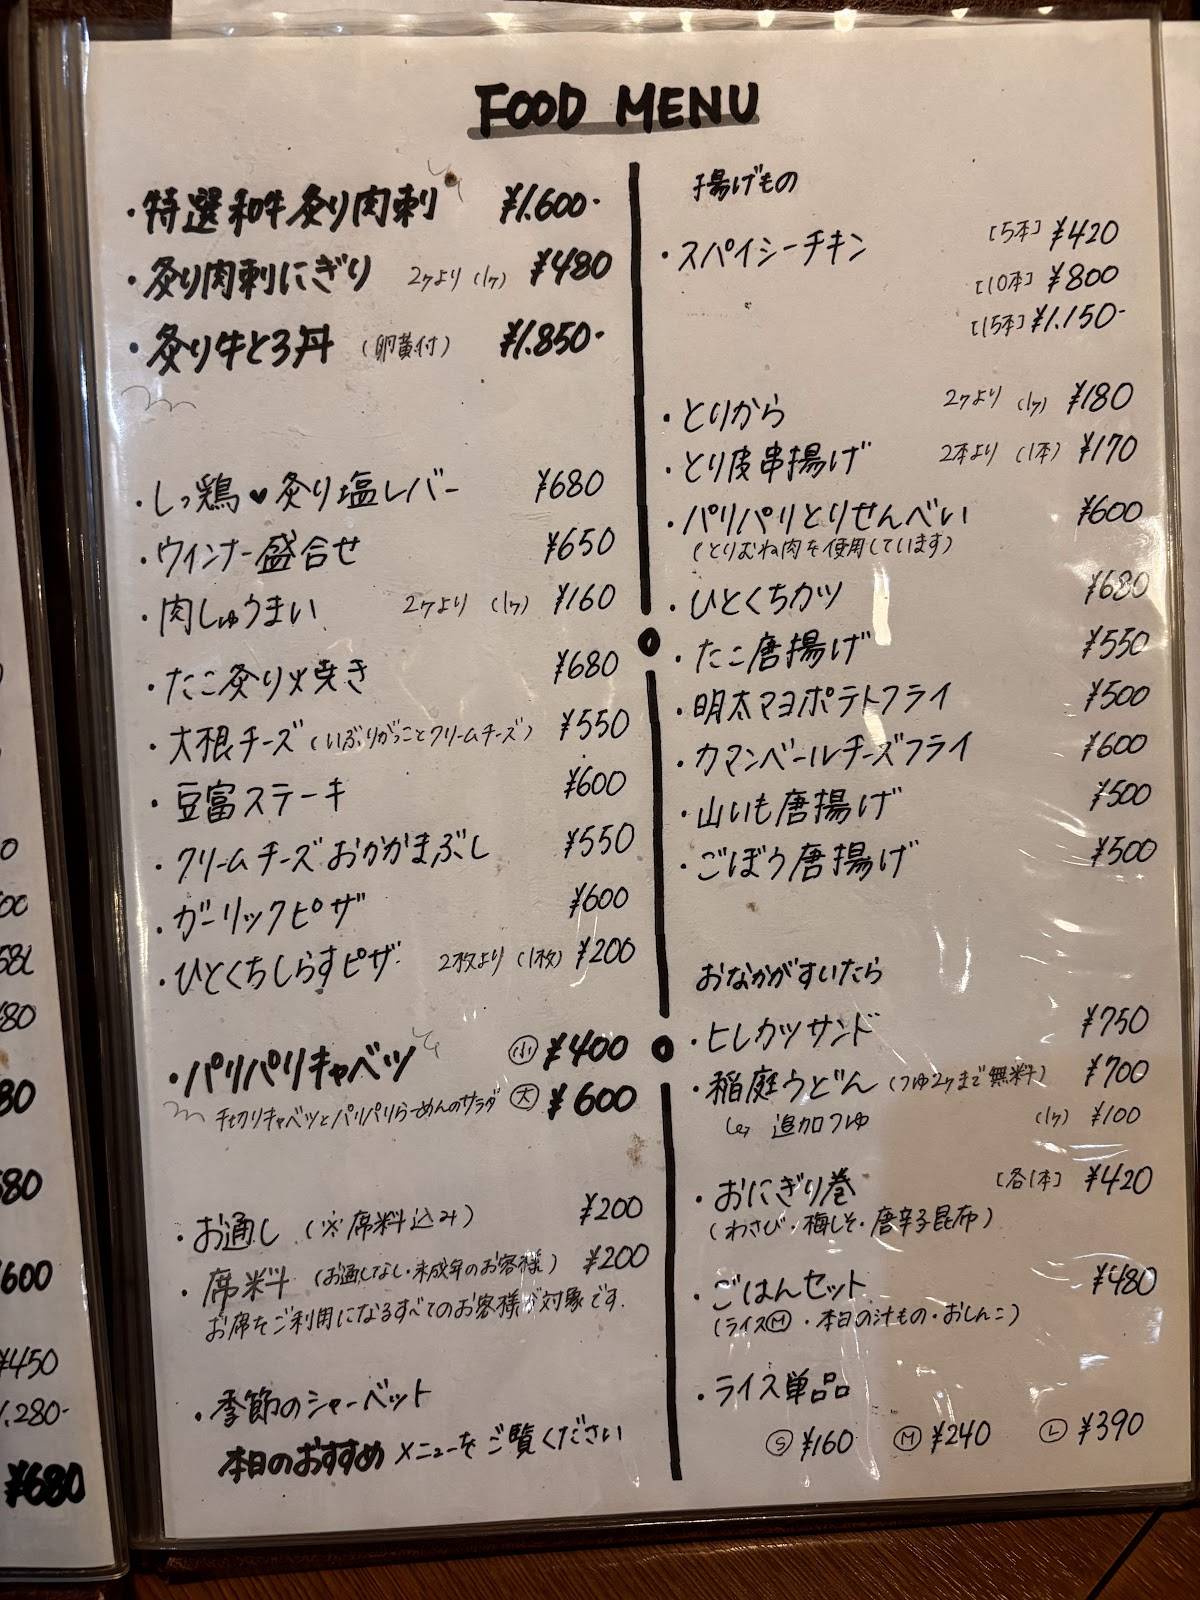 FOOD MENU
・特選和牛炙り肉刺 ¥1.600-
・炙り肉刺にぎり 2ヶより (1ヶ) ¥480
・炙り牛とろ丼 (卵黄付) ¥1.850-
・しっ鶏♥炙り塩レバー ¥680
・ウィンナー盛合せ ¥650
・肉しゅうまい 2ヶより (1ヶ) ¥160
・たこ炙り火焼き ¥680
・大根チーズ (いぶりがっことクリームチーズ) ¥550
・豆富ステーキ ¥600
・クリームチーズおかかまぶし ¥550
・ガーリックピザ ¥600
・ひとくちしらすピザ 2枚より (1枚) ¥200
・パリパリキャベツ ㋛ ¥400
千切りキャベツとパリパリらーめんのサラダ 大 ¥600
・お通し (※席料込み) ¥200
・席料 (お通しなし・未成年のお客様) ¥200
お席をご利用になるすべてのお客様が対象です.
・季節のシャーベット
本日のおすすめメニューをご覧ください
揚げもの
・スパイシーチキン [5本] ¥420
[10本] ¥800
[15本] ¥1.150-
・とりから 2ヶより (1ヶ) ¥180
・とり皮串揚げ 2本より (1本) ¥170
・パリパリとりせんべい ¥600
(とりむね肉を使用しています)
・ひとくちカツ ¥680
・たこ唐揚げ ¥550
・明太マヨポテトフライ ¥500
・カマンベールチーズフライ ¥600
・山いも唐揚げ ¥500
・ごぼう唐揚げ ¥500
おなかがすいたら
・ヒレカツサンド ¥750
・稲庭うどん (つゆ2ヶまで無料) ¥700
追加つゆ (1ヶ) ¥100
・おにぎり巻 [各1本] ¥420
(わさび・梅しそ・唐辛子昆布)
・ごはんセット ¥480
(ライスⓂ・本日の汁もの・おしんこ)
・ライス単品
Ⓢ ¥160 Ⓜ ¥240 Ⓛ ¥390
¥600
¥450
1.280-
¥680